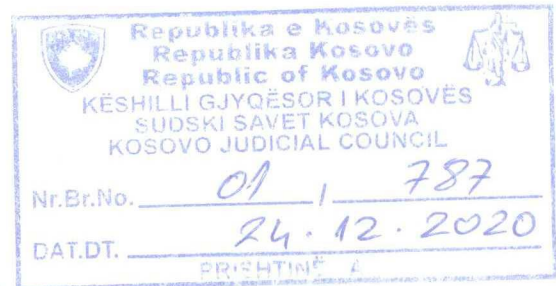 Republika e Kosovës
Republika Kosovo
Republic of Kosovo
KËSHILLI GJYQËSOR I KOSOVËS
SUDSKI SAVET KOSOVA
KOSOVO JUDICIAL COUNCIL
Nr.Br.No. 01 / 787
DAT.DT. 24.12.2020
PRISHTINË A